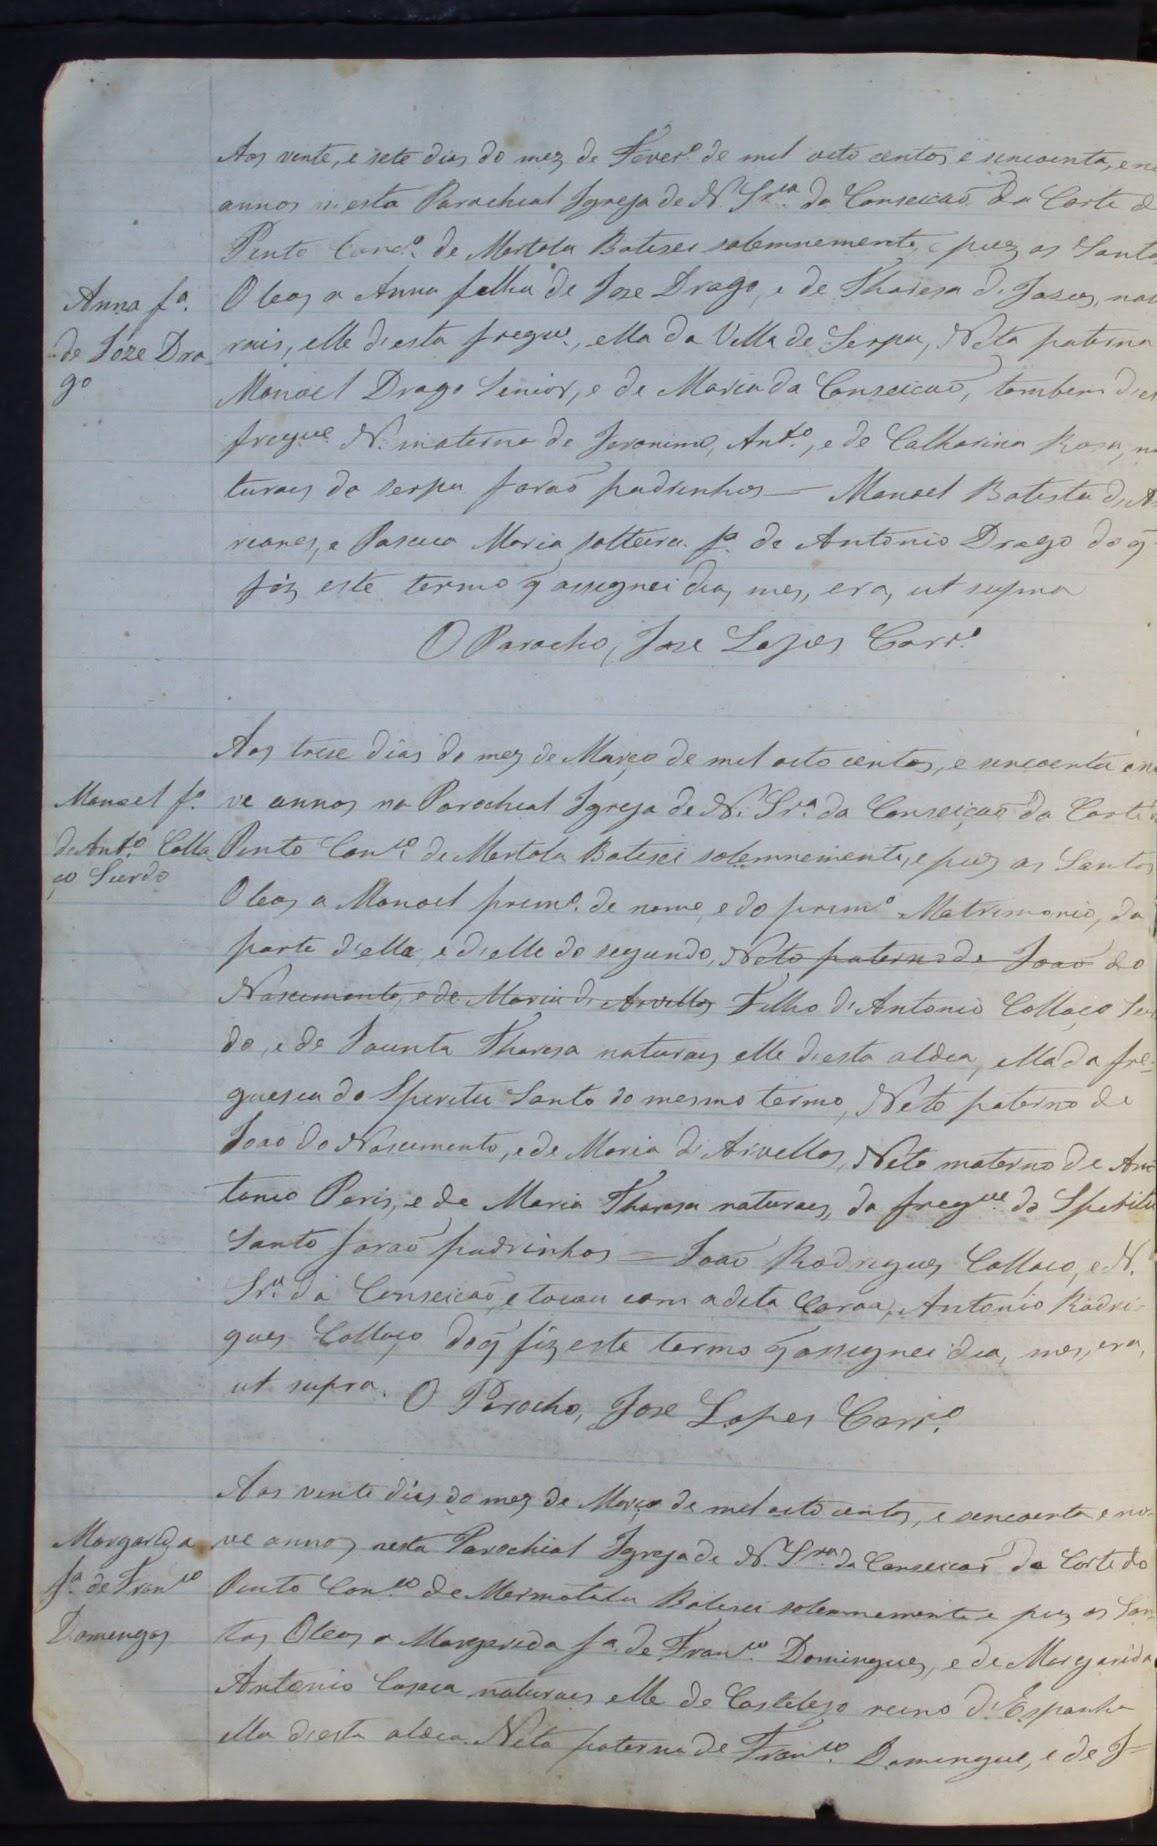 Aos vente, e sete dias do mez de Fever.º de mil oito centos e sencoenta, e no
annos n'esta Parochial Igreja de N. Sr.ª da Conseicaõ da Corte d
Pinto Conc.º de Mertola Batisei solemnemente, e puz os Santos
Anna f.ª
de Joze Dra
go
Oleos a Anna filha de Joze Drago, e de Thareza de Jazus, natu
rais, elle d'esta fregue.ª, ella da Villa de Serpa, Neta paterna
Manoel Drago Senior, e de Maria da Conseicaõ, tambem d'es
fregue.ª N. materna de Jeronimo, Ant.º, e de Catharina Rosa, na
turaes de Serpa foraõ padrinhos — Manoel Batista
rianes, e Pascoa Maria solteira f.ª de Antonio Drago do q
fiz este termo q assignei dia, mes, era, ut supra
O Parocho, Joze Lopes Corr.ª
Aos trese dias do mez de Março de mil oito centos, e sencoenta e no
Manoel f.º
de Ant.º Colla
ço Surdo
ve annos na Parochial Igreja de N. Sr.ª da Conseiçaõ da Corte d
Pinto Con.co de Mertola Batisei solemnemente, e puz os Santos
Oleos a Manoel prim.º de nome, e do prim.º Matrimonio, da
parte d'ella, e d'elle do segundo, Neto paterno de Joaõ do
Nascimento, e de Maria d'Arvellos Filho d'Antonio Collaço Sur
do, e de Jacinta Thareza naturaes elle d'esta aldea, ella da fre=
guesia do Spiritu Santo do mesmo termo, Neto paterno de
Joaõ do Nascimento, e de Maria d'Arvellos, Neto materno de An
tonio Peris, e de Maria Thareza naturaes, da freg.ue do Spiritu
Santo foraõ padrinhos — Joaõ Rodrigues Collaço, e N.
Sr.ª da Conseicaõ, e tocou com a dita Coroa, Antonio Rodri-
gues Collaço do q fiz este termo q assignei dia, mes, era,
ut supra. O Parocho, Joze Lopes Corr.ª
Aos vente dias do mez de Março de mil oito centos, e sencoenta e no-
Margarida
f.ª de Fran.co
Domingos
ve annos, nesta Parochial Igreja de N. Sr.ª da Conseicaõ da Corte do
Pinto Con.co de Mermotola Batisei solemnemente e puz os San=
tos Oleos a Margarida f.ª de Fran.co Domingues, e de Margarida
Antonio Casaca naturaes elle de Castelejo reino d'Espanha
ella d'esta aldea. Neta paterna de Fran.co Domingue, e de J=